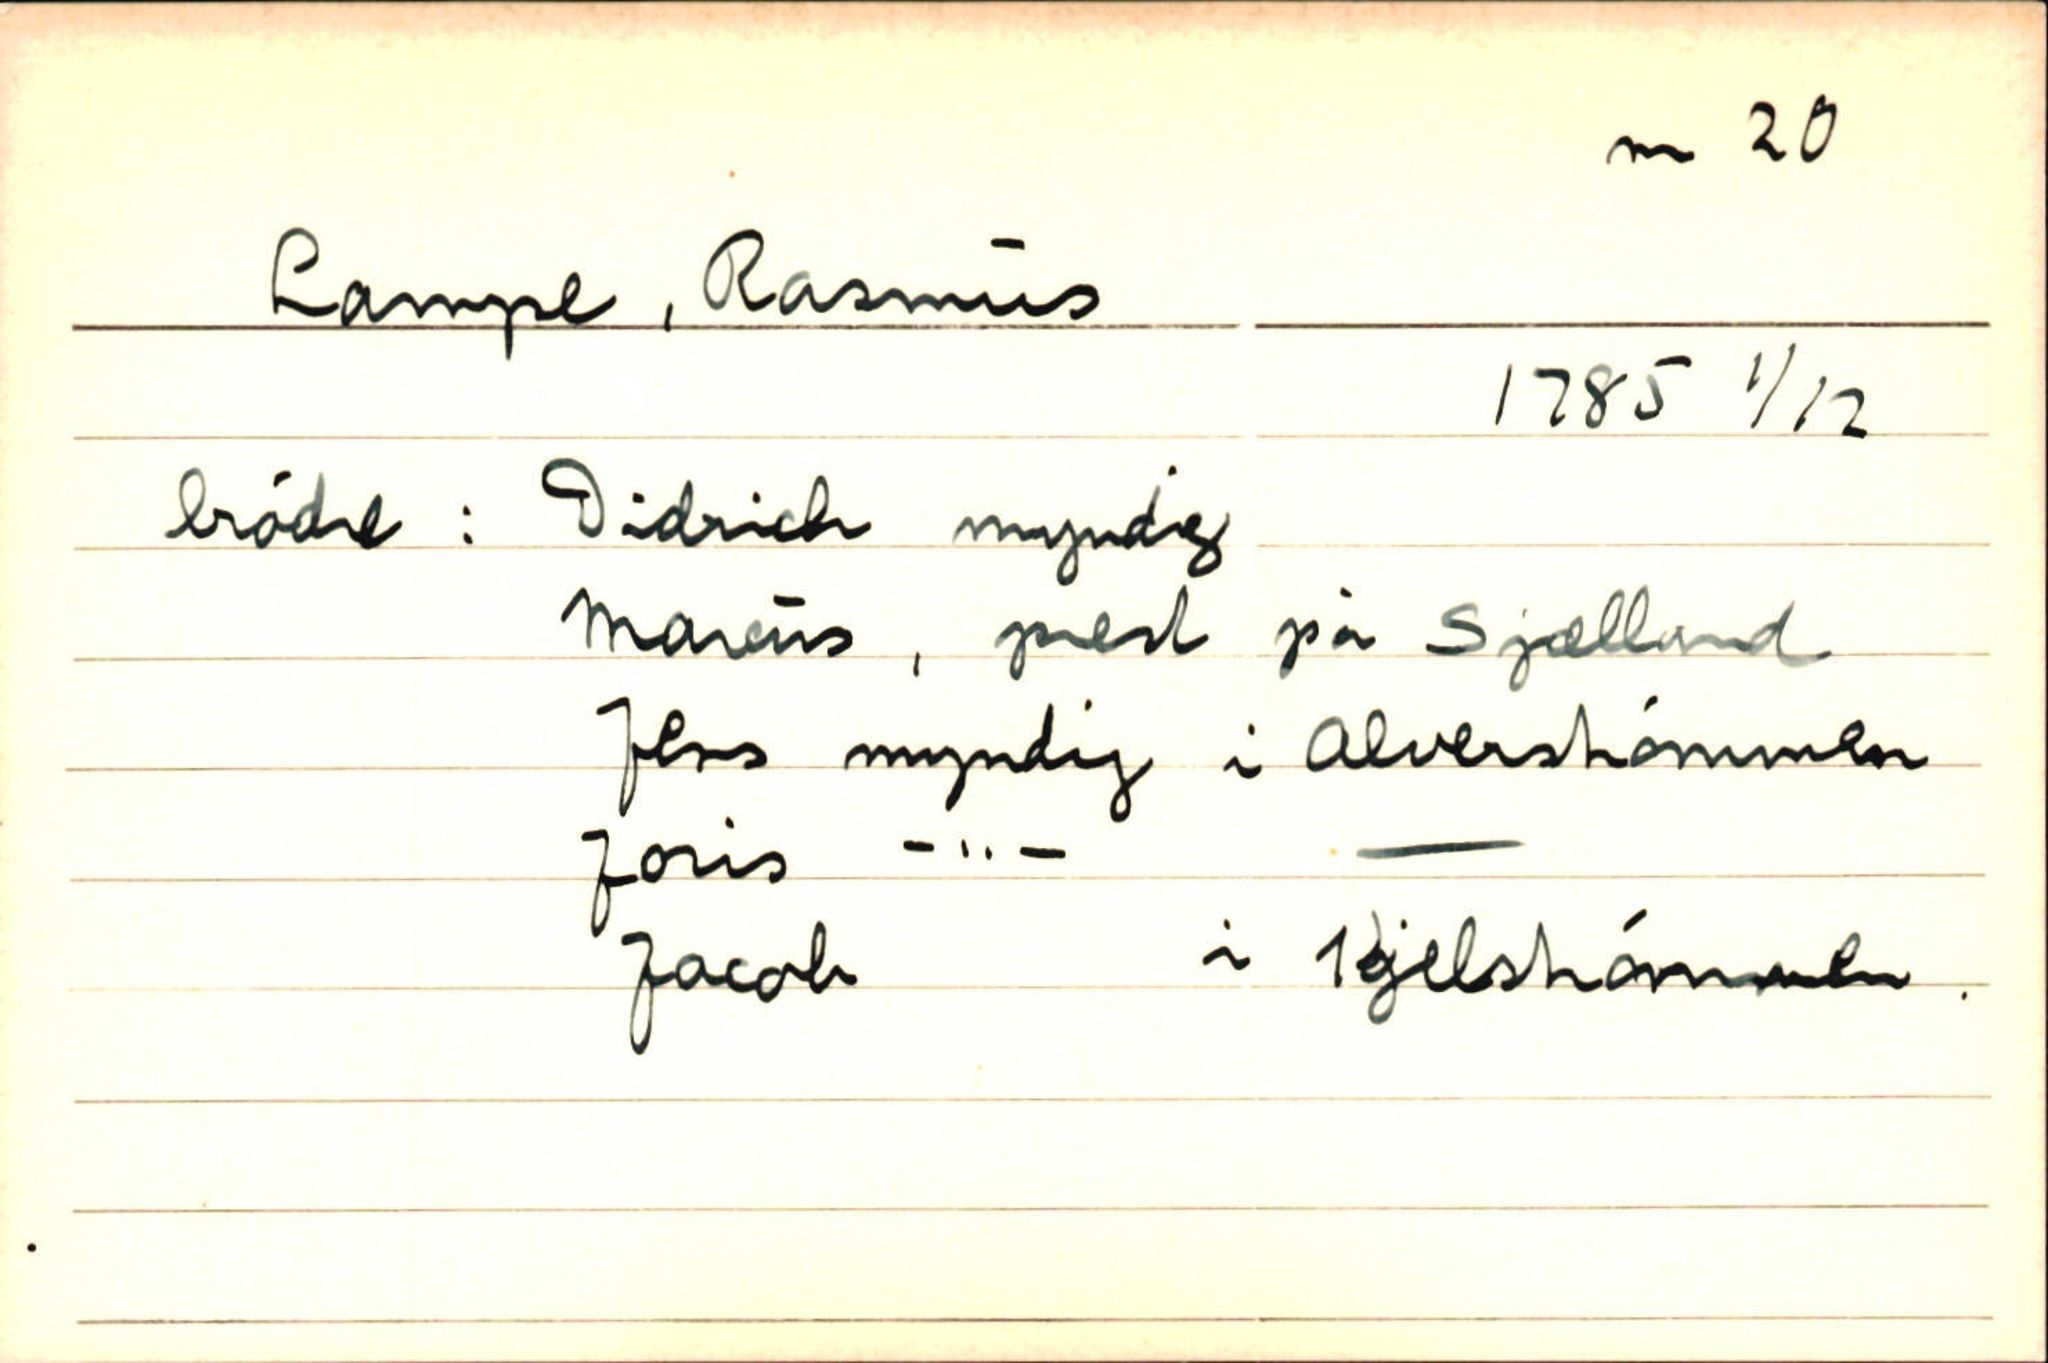 m 20
Lampe, Rasmus
1785 1/12
brödre : Didrich myndig
Marcus, prest på Sjælland
Jens myndig i Alverströmmen
Joris -"- —
Jacob i Kjelströmmen.